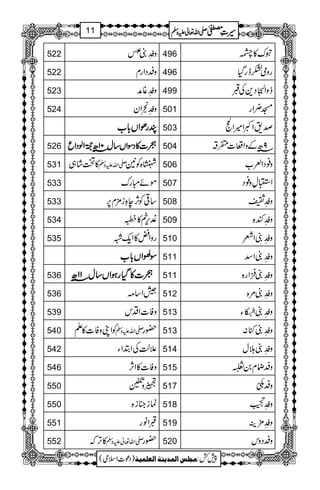 سیرتِ مصطفیٰ صلی اللہ تعالیٰ علیہ وسلم 11
تبوک کا چشمہ 496
رومی لشکر ڈر گیا 496
ذوالبجادین کی قبر 497
مسجد ضرار 501
صدیق اکبر امیر الحج 503
۹ھ کے واقعات متفرقہ 504
وفود العرب 506
استقبال وفود 507
وفد ثقیف 508
وفد کندہ 509
وفد بنی اشعر 510
وفد بنی اسد 511
وفد بنی فزارہ 511
وفد بنی مرہ 512
وفد بنی البکاء 513
وفد بنی کنانہ 513
وفد بنی ہلال 514
وفد ضمام بن ثعلبہ 516
وفد بلی 517
وفد تجیب 518
وفد مزینہ 519
وفد دوس 520
وفد بنی عبس 522
وفد دارم 522
وفد غامد 523
وفد نجران 524
پندرھواں باب
ہجرت کا دسواں سال ۱۰ھ حجۃ الوداع 526
شہنشاہ کونین صلی اللہ علیہ وسلم کا تخت شاہی 531
موئے مبارک 533
ساقی کوثر چاہ زمزم پر 533
غدیر خم کا خطبہ 534
روافض کا ایک شبہ 535
سولھواں باب
ہجرت کا گیارہواں سال ۱۱ھ 536
جیش اسامہ 536
وفات اقدس 539
حضور صلی اللہ علیہ وسلم کو اپنی وفات کا علم 540
علالت کی ابتداء 542
وفات کا اثر 546
تجہیز و تکفین 550
نماز جنازہ 550
قبر انور 551
حضور صلی اللہ تعالیٰ علیہ وسلم کا ترکہ 552
پیش کش: مجلس المدینۃ العلمیۃ (دعوت اسلامی)